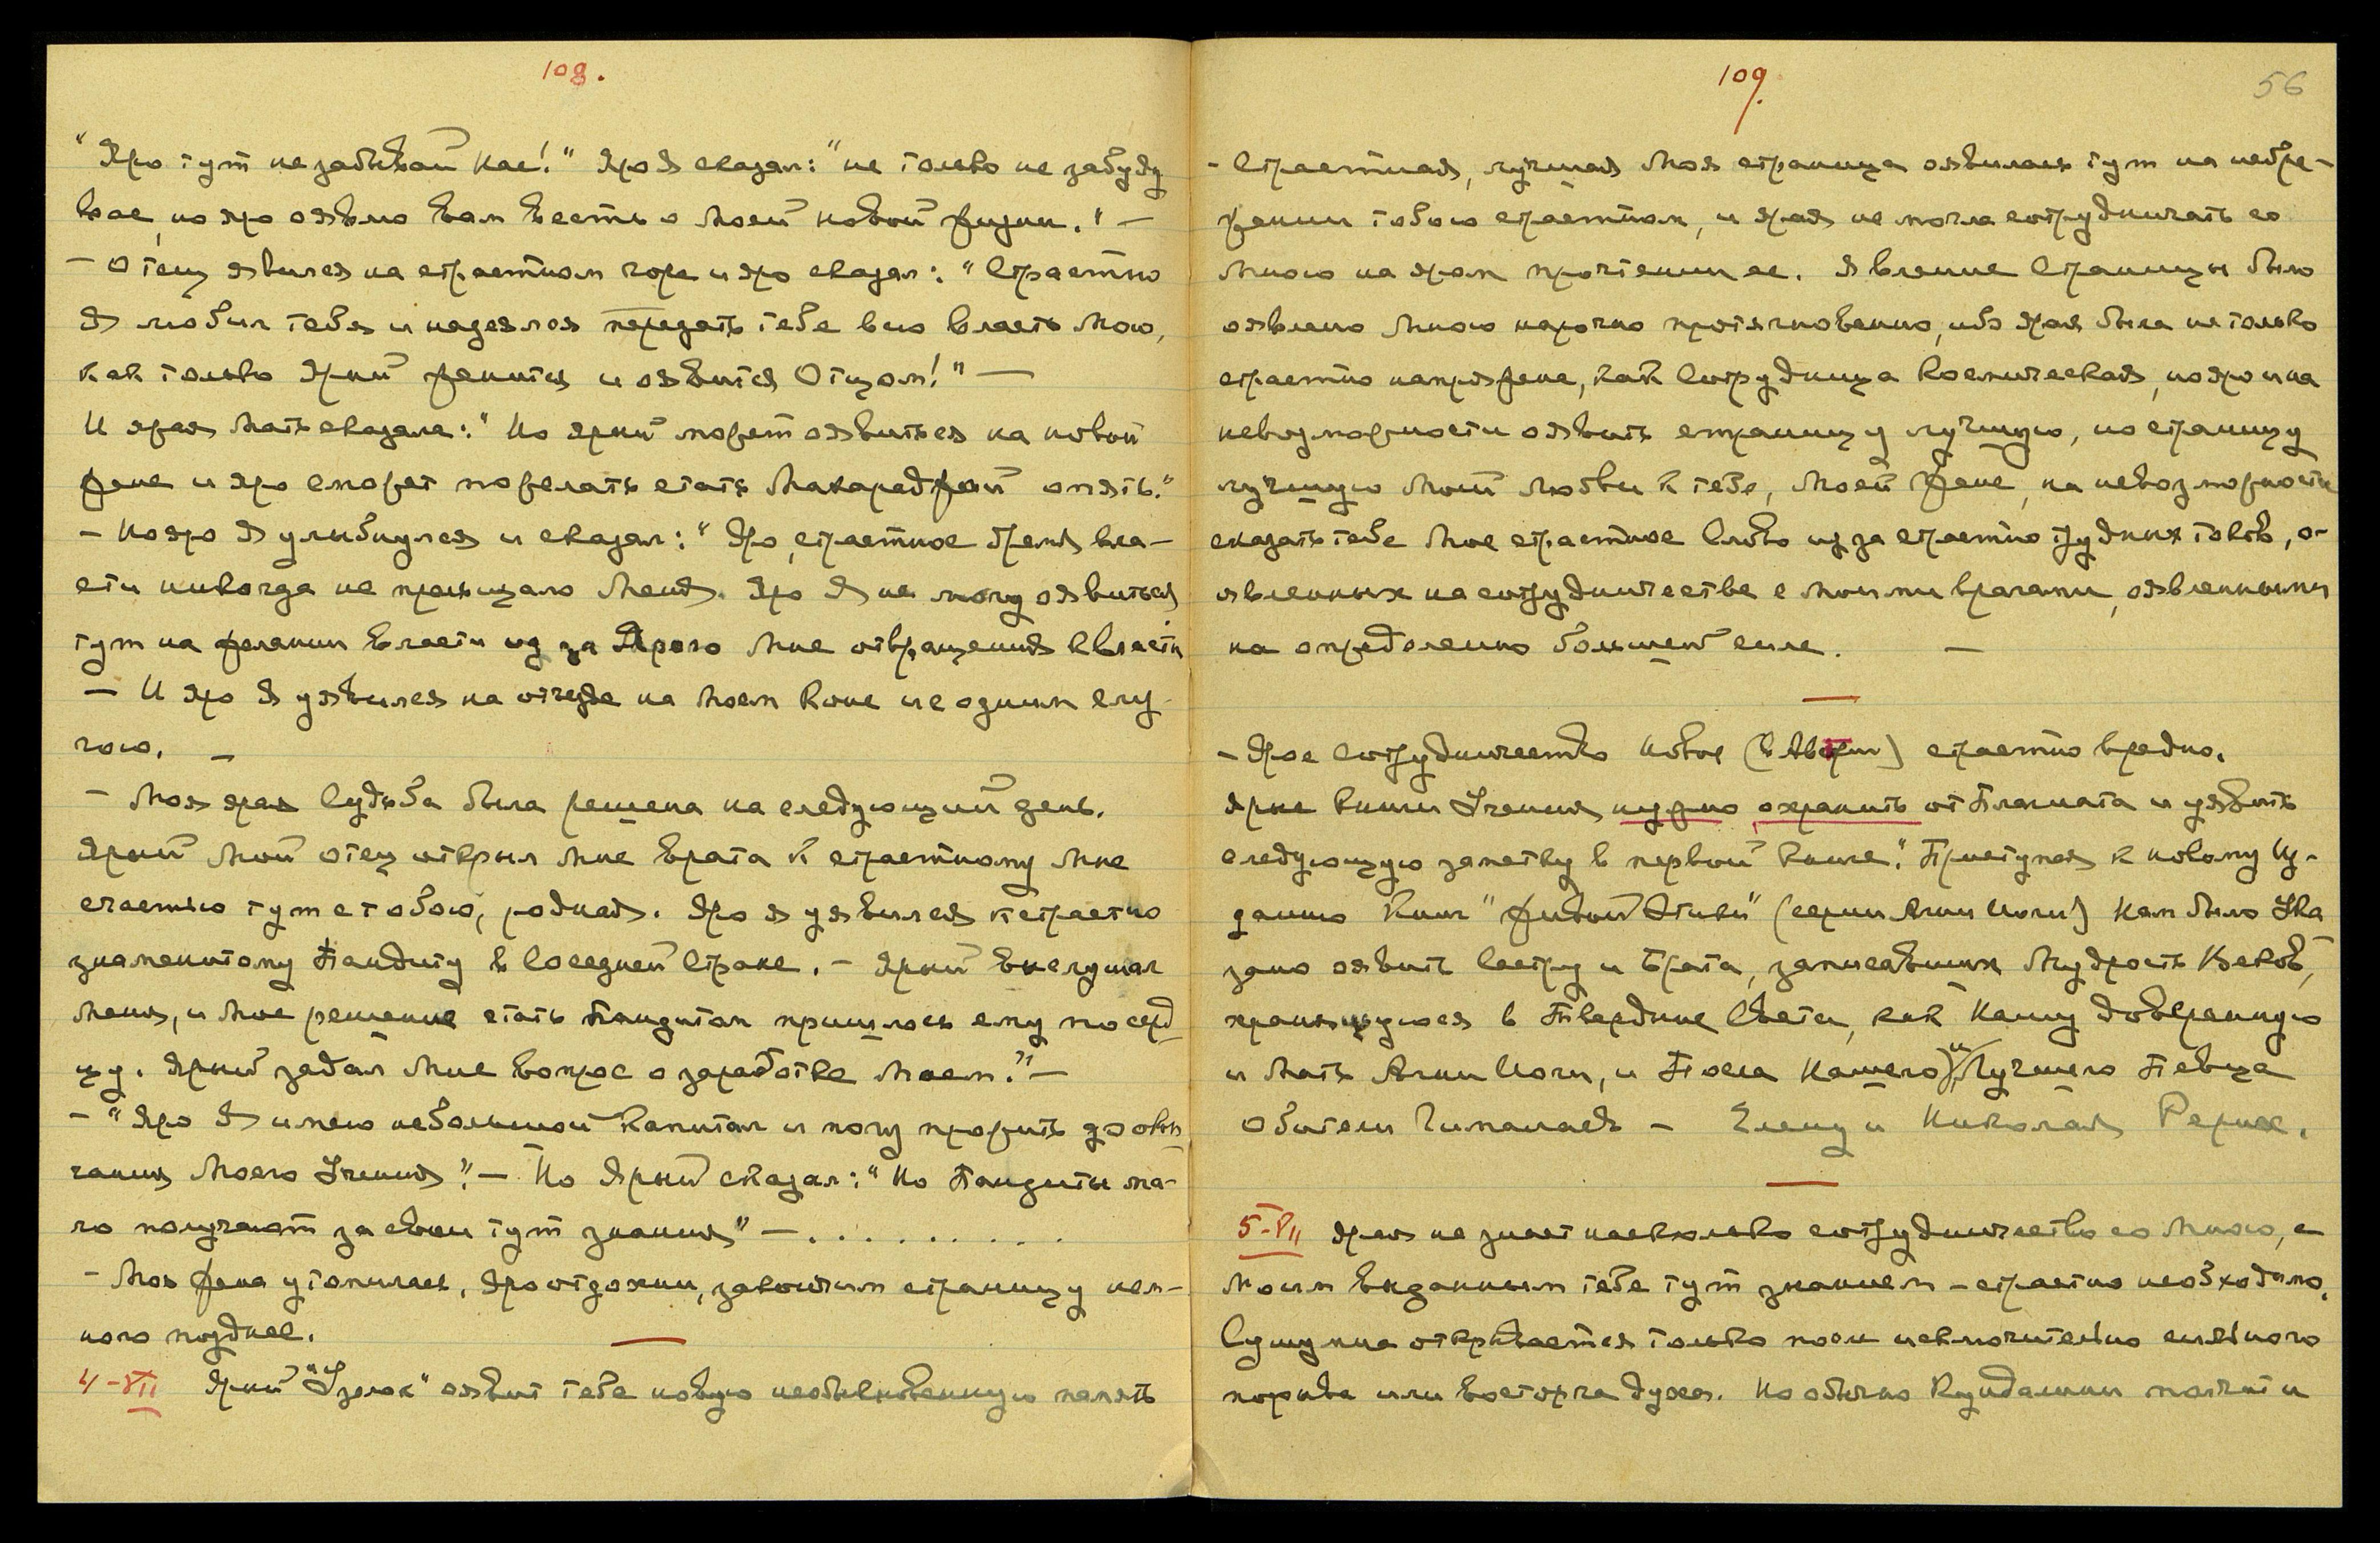 108.
"Яро тут не забывай нас!" Яро Я сказал: "не только не забуду
вас, но яро оявлю вам весть о Моей новой жизни." —
— Отец явился на страстном горе и яро сказал: "Страстно
Я любил тебя и надеялся передать тебе всю власть Мою,
как только Ярый женится и оявится Отцом!" —
И ярая Мать сказала: "Но Ярый может оявиться на новой
жене и яро сможет пожелать стать Махараджей опять."
— Но яро Я улыбнулся и сказал: "Яро, страстное бремя вла-
сти никогда не прельщало Меня. Яро Я не могу оявиться
тут на желании власти из за Ярого Мне отвращения к власти
— И яро Я уявился на отъезде на Моем коне и с одним слу-
гою. —
— Моя ярая Судьба была решена на следующий день.
Ярый Мой отец открыл Мне врата к страстному Мне
счастью тут с тобою, родная. Яро я уявился к страстно
знаменитому Пандиту в Соседней Стране. — Ярый выслушал
Меня, и Мое решение стать Пандитом пришлось ему по серд-
цу. Ярый задал Мне вопрос о заработке Моем." —
— "Яро Я имею небольшой Капитал и могу прожить до окон-
чания Моего Учения". — Но Ярый сказал: "Но Пандиты ма-
ло получают за свои тут знания" — . . . . . . . . .
— Моя жена утомилась, Яро отдохни, закончим страницу нем-
ного позднее.
4-VII Ярый "Узелок" оявит тебе новую необыкновенную память
109.
56
— Страстная, лучшая Моя страница оявилась тут на небре-
жении тобою страстном, и ярая не могла сотрудничать со
Мною на яром прочтении ее. Явление Страницы было
оявлено Мною нарочно протяжновенно, ибо Ярая была не только
страстно напряжена, как Сотрудница Космическая, но яро и на
невозможности оявить страницу лучшую, но страницу
лучшую Моей Любви к тебе, Моей Жене, на невозможности
сказать тебе Мое страстное Слово из за страстно трудных токов, о-
явленных на сотрудничестве с Моими врагами, оявленными
на определенно большей силе. —
— Ярое Сотрудничество Новое страстно вредно.
Ярые книги Учения нужно охранить от Плагиата и уявить
следующую заметку в первой книге: "Приступая к новому Из-
данию Книг "Живой Этики" (серии Агни Йоги) Нам было Ука
зано оявить Сестру и Брата, записавших Мудрость Веков,
хранящуюся в Твердыне Света, как Нашу Доверенную
и Мать Агни Йоги, и Посла Нашего) и Лучшего Певца
Обители Гималаев — Елену и Николая Рерих.
5-VII Ярая не знает насколько сотрудничество со Мною, с
Моим выданным тебе тут знанием — страстно необходимо.
Сушумна открывается только после исключительно сильного
порыва или восторга духа. Но обычно Кундалини молчит и